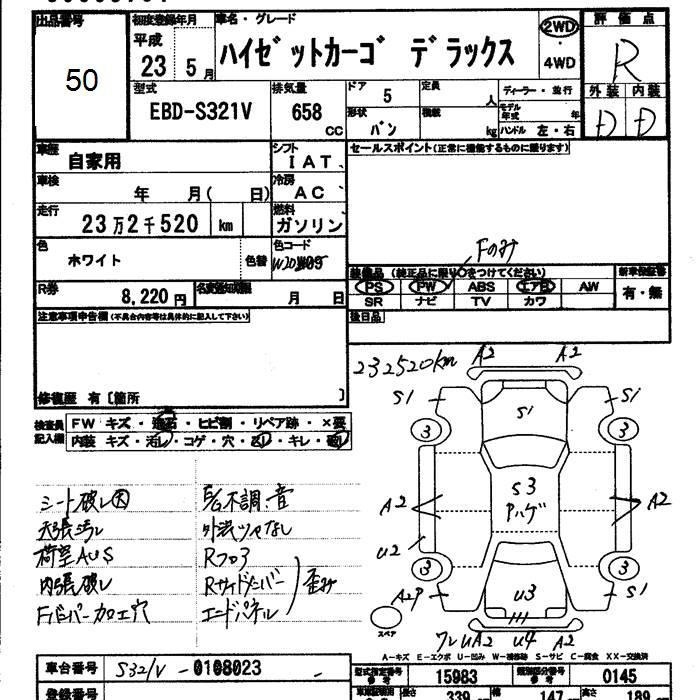 出品番号 50
初度登録年月 平成 23 5月
車名・グレード ハイゼットカーゴ デラックス
2WD・4WD
評価点 R
外装 内装
D D
型式 EBD-S321V
排気量 658 CC
ドア 5
形状 バン
定員 人
積載 kg
ディーラー・並行
モデル年式 年
ハンドル 左・右
車歴 自家用
シフト IAT
セールスポイント(正常に機能するものに限ります)
車検 年 月( 日)
冷房 AC
走行 23万2千520 km
燃料 ガソリン
色 ホワイト 色替
色コード
Fのみ
R券 8,220円
名変期限 月 日
装備品 (装正品に限り○をつけてください)
PS PW ABS エアB AW
SR ナビ TV カワ
新車保証書 有・無
後日品
注意事項申告欄(不具合内容等は具体的に記入して下さい)
修復歴 有〔箇所 〕
検査員記入欄
FW キズ・飛石・ヒビ割・リペア跡・×要
内装 キズ・汚レ・コゲ・穴・・キレ・
232520km
A2 A2
S1 S1 S1
3 3
S3
Pハゲ
A2 A2
U2
3 3
A2P U3 S1
スペア
UA2 U4 A2
シート破レ大
天張汚レ
荷室AUS
内張破レ
Fバンパー加工穴
E/G不調、音
外装ツヤなし
Rフロア
Rサイドメンバー
エンドパネル
歪み
A-キズ E-エクボ U-凹み W-補修跡 S-サビ C-腐食 XX-交換済
車台番号 S321V - 0108023
型式指定番号 15983
類別区分番号 0145
登録番号
長さ 339
幅 147
高さ 189